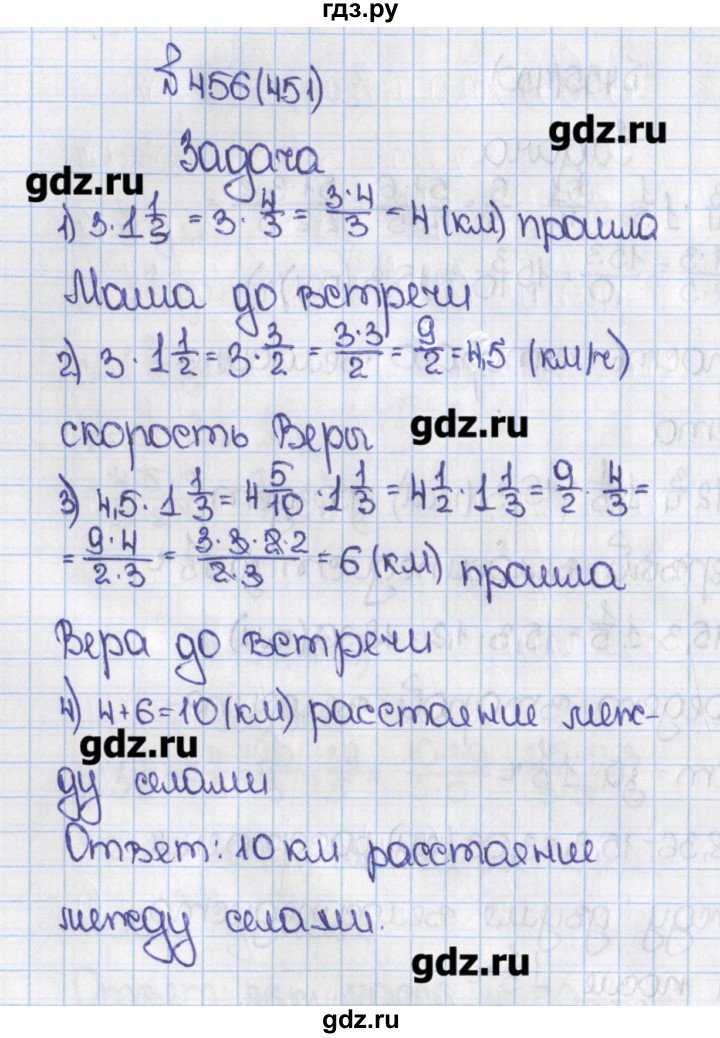 гдз.ру
№456(451)
gdz.ru
Задача
gdz.ru
1) 3·1 1/3 = 3·4/3 = 3·4/3 = 4 (км) прошла
Маша до встречи
2) 3·1 1/2 = 3·3/2 = 3·3/2 = 9/2 = 4,5 (км/ч)
скорость Веры
gdz.ru
3) 4,5·1 1/3 = 4 5/10·1 1/3 = 4 1/2·1 1/3 = 9/2·4/3 =
= 9·4/2·3 = 3·3·2·2/2·3 = 6 (км) прошла
Вера до встречи
4) 4+6=10(км) расстояние меж-
gdz.ru
ду селами
Ответ: 10 км расстояние
между селами.
gdz.ru
gdz.ru